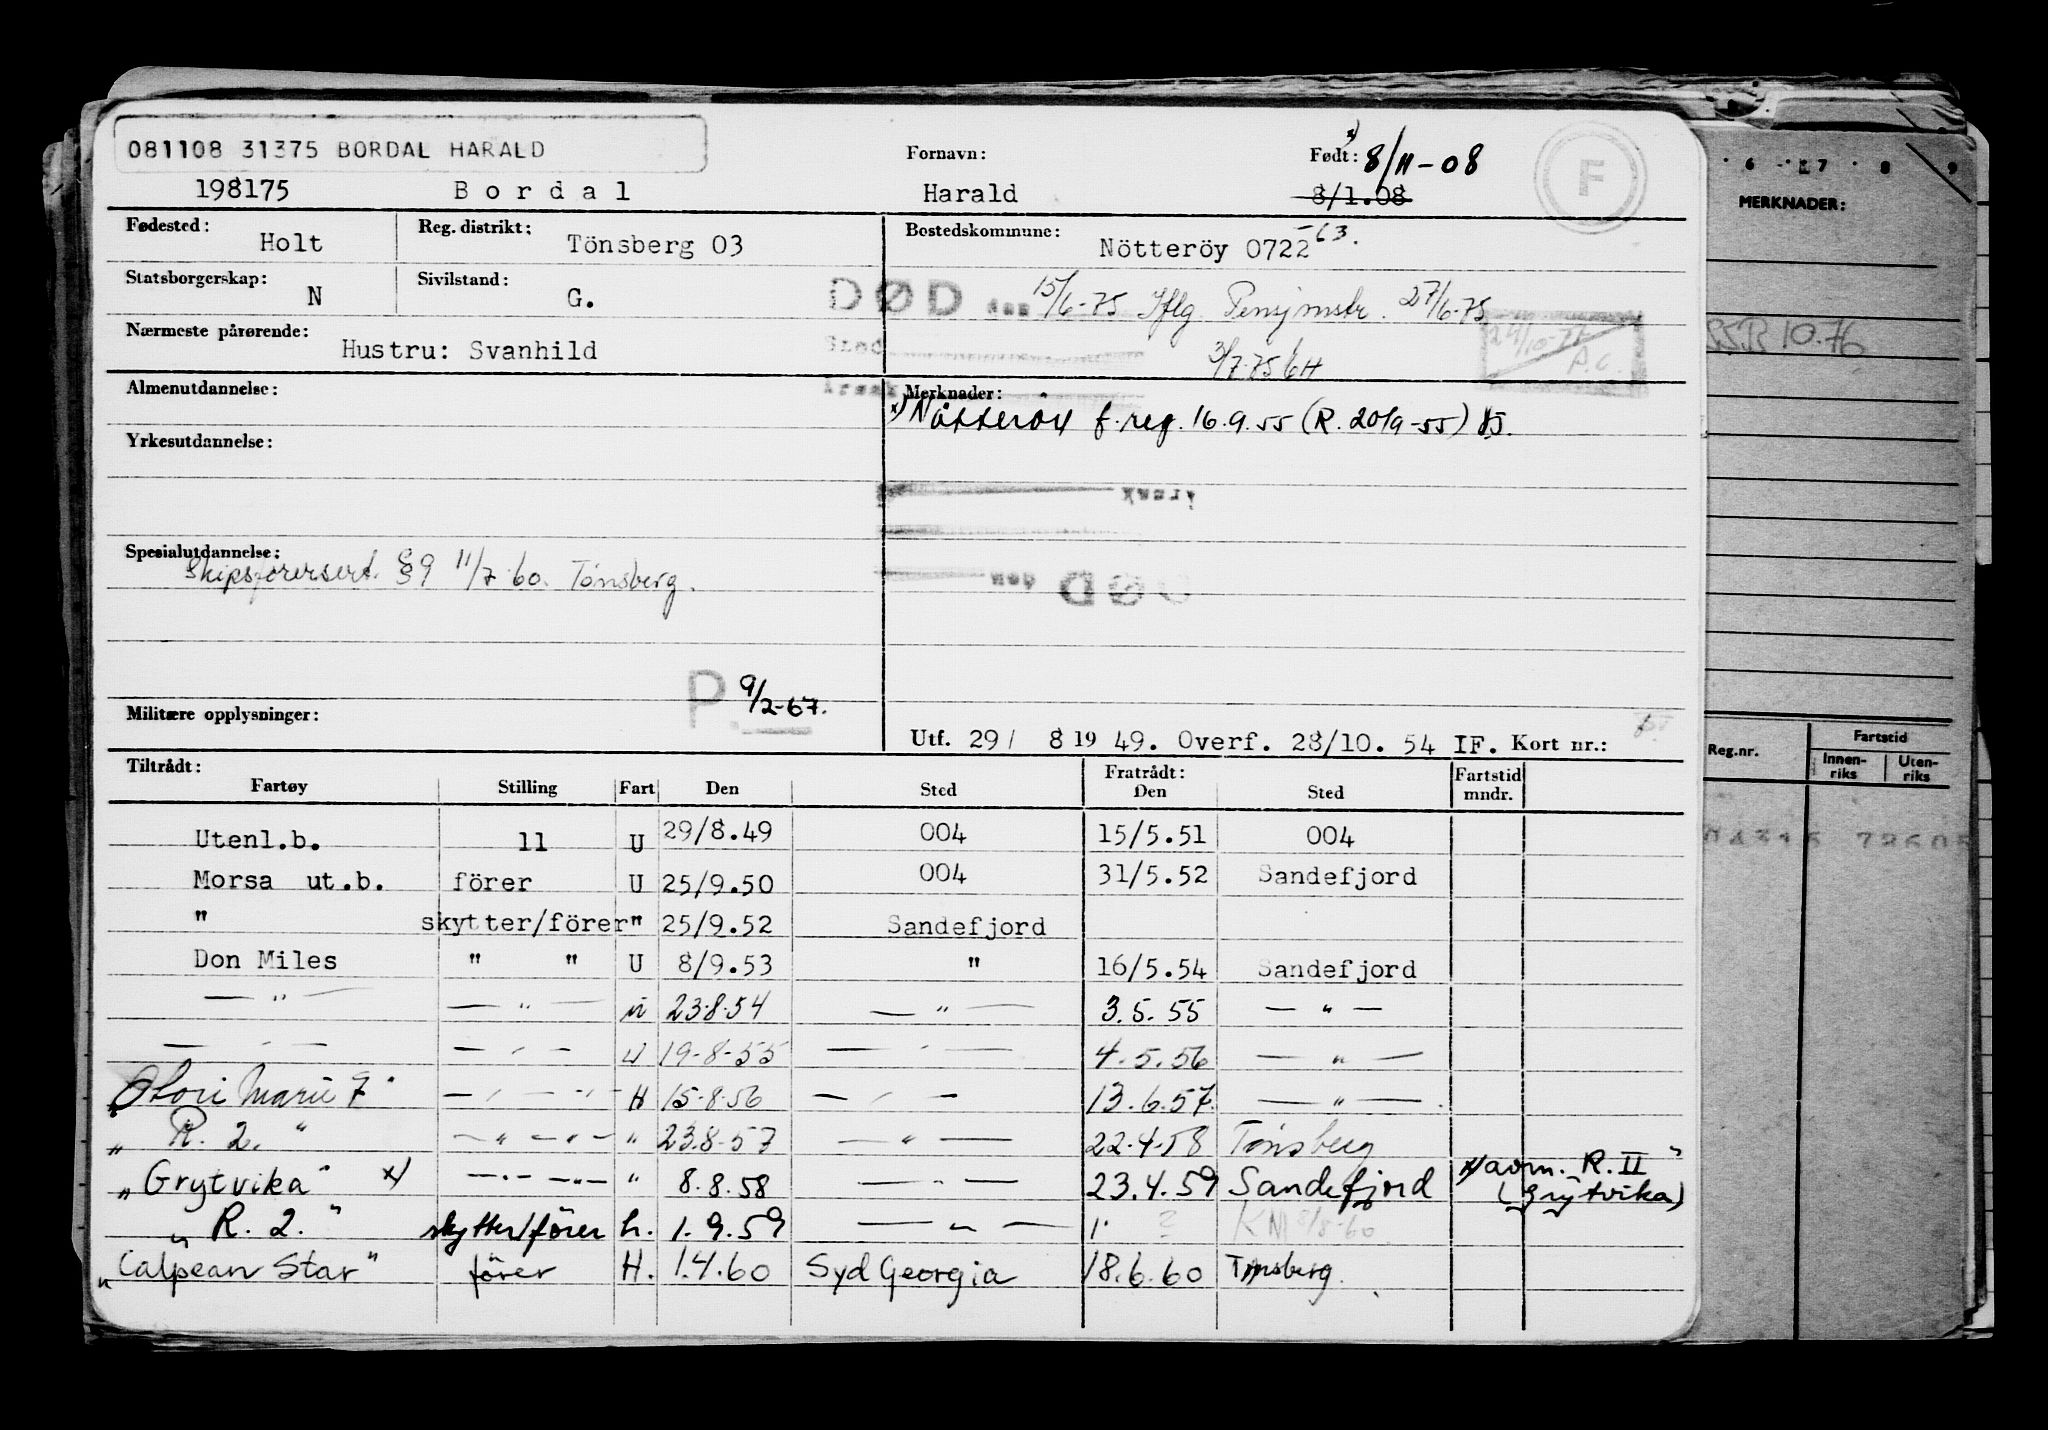 081108 31375 BORDAL HARALD
198175 Bordal Fornavn: Harald x) Født: 8/11-08 8/1.08 F
Fødested: Holt Reg. distrikt: Tönsberg 03 Bostedskommune: Nötteröy 0722 -63.
Statsborgerskap: N Sivilstand: G. DØD den 15/6-75 Iflg. Pensjonstr. 27/6-75
Nærmeste pårørende: Hustru: Svanhild Sted 3/7-75 GH
Almenutdannelse: årsak Merknader:
x) Nøtterøy f. reg. 16.9.55 (R. 20/9-55)
Yrkesutdannelse:
årsak
Spesialutdannelse:
Skipsførersert. §9 11/7-60. Tönsberg.
DØD den
P 9/2-67.
Militære opplysninger:
Utf. 29/ 8 19 49. Overf. 28/10. 54 IF. Kort nr.:
Tiltrådt: Fratrådt:
Fartøy Stilling Fart Den Sted Den Sted Fartstid mndr.
Utenl.b. 11 U 29/8.49 004 15/5.51 004
Morsa ut.b. förer U 25/9.50 004 31/5.52 Sandefjord
" skytter/förer " 25/9.52 Sandefjord
Don Miles " " U 8/9.53 " 16/5.54 Sandefjord
— " — — " — u 23.8.54 — " — 3.5.55 — " —
— " — — " — u 19-8-55 — " — 4.5.56 — " —
— " — — " — H 15-8-56 — " — 13.6.57. — " —
„ R. 2. " — " — " — " 23.8-57 — " — 22.4.58 Tönsberg
„Grytvika" x) — " — " — " 8.8.58 — " — 23.4.59 Sandefjord x) R. II "
(Grytvika)
„ R. 2. " skytter/förer h. 1.9.59 — " — 1. ? KM 8/8-60
„Calpean Star" förer H. 1.4.60 Syd Georgia 18.6.60 Tönsberg.
6 7 8 9
MERKNADER:
10.76
Reg.nr. Fartstid
Innen-riks Uten-riks